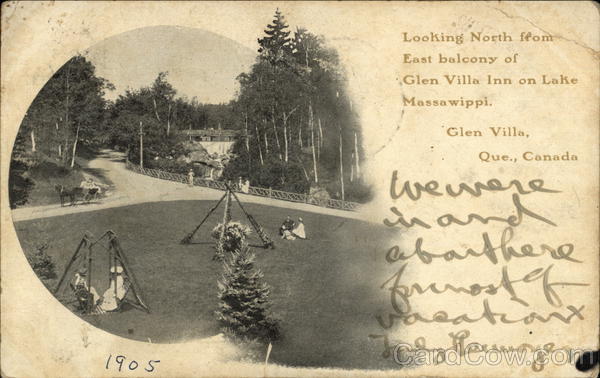 Looking North from
East balcony of
Glen Villa Inn on Lake
Massawippi.
Glen Villa,
Que., Canada
We were
in and
about here
for most of
vacation
1905
CardCow.com